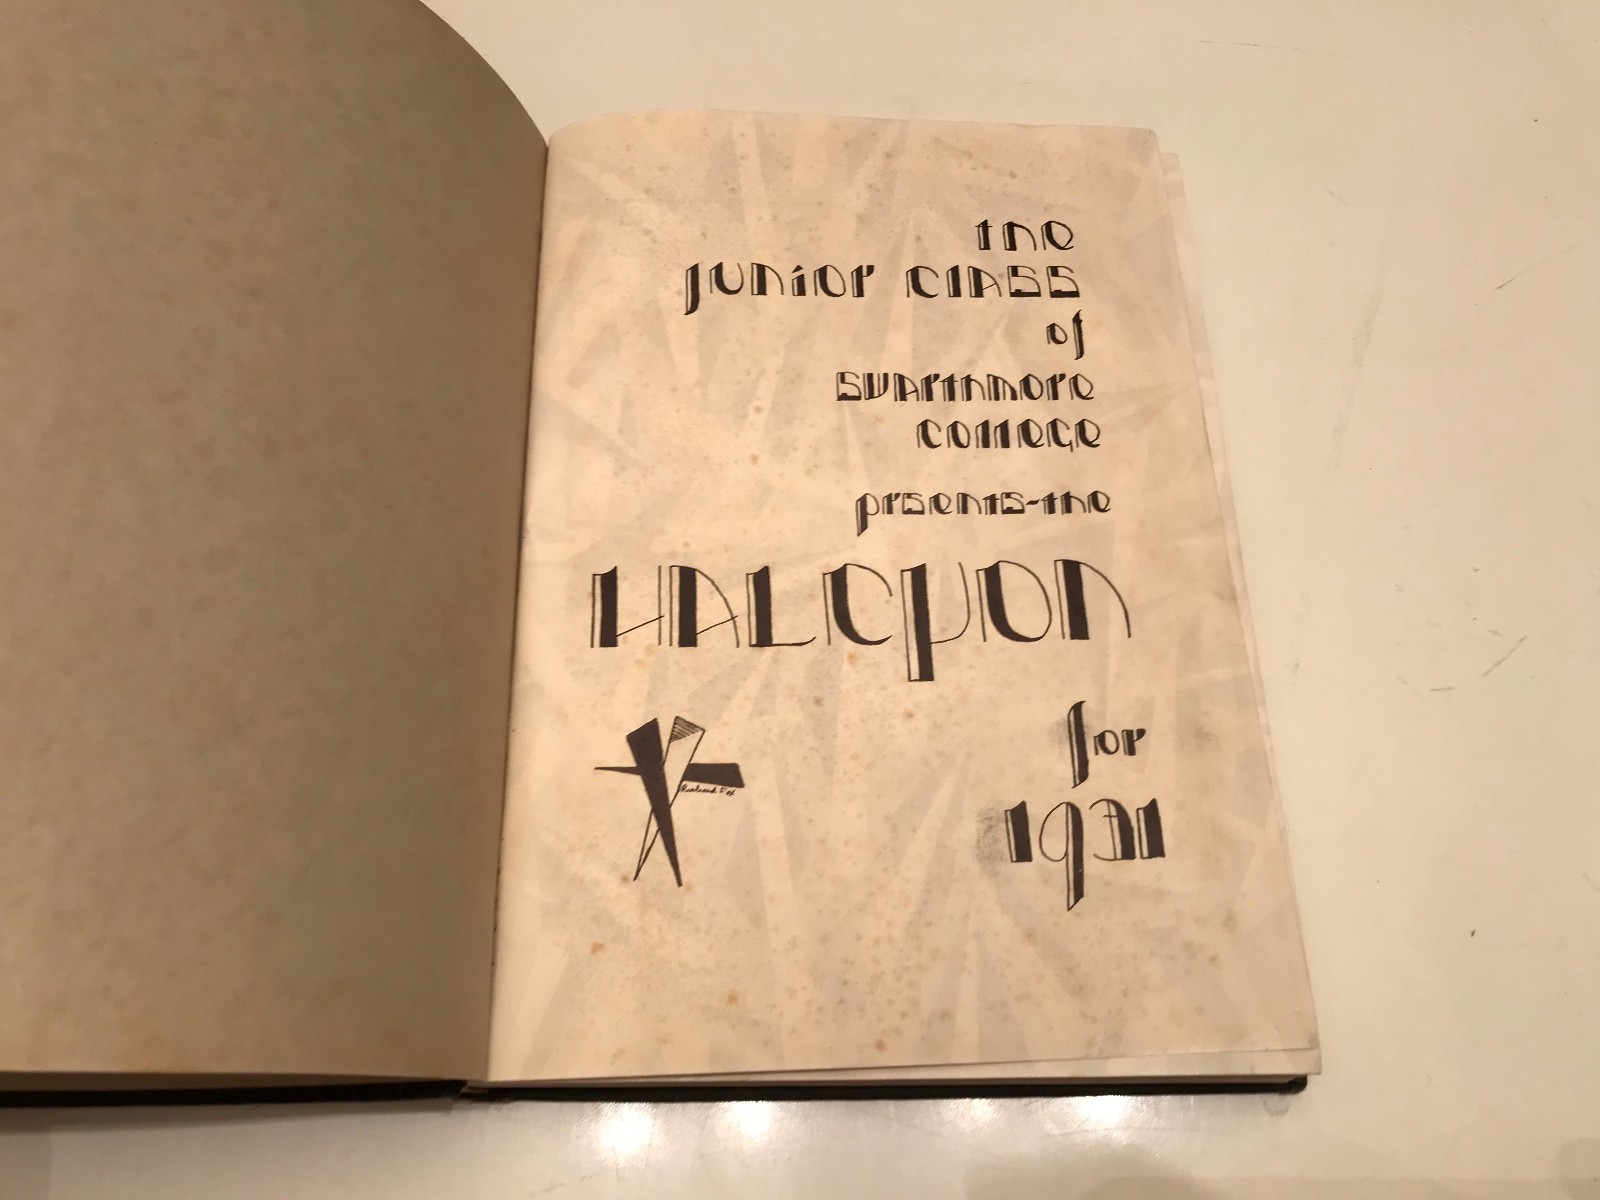 the
junior class
of
swarthmore
college
prsents-the
HALCYON
for
1931